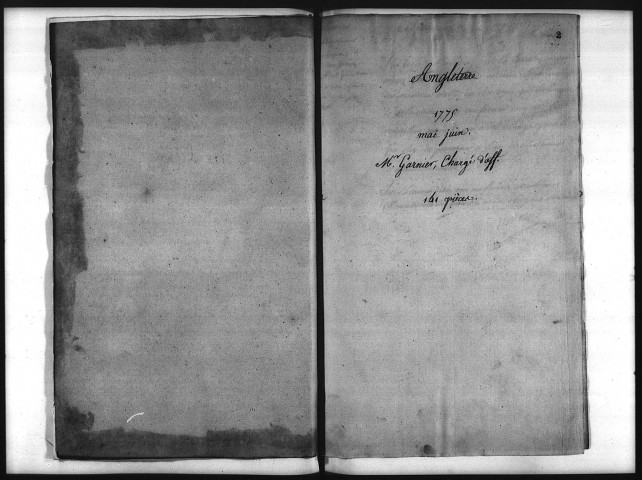 2
Angleterre
1775
mai juin.
Mr. Garnier, Chargé d'aff.
161 pièces.